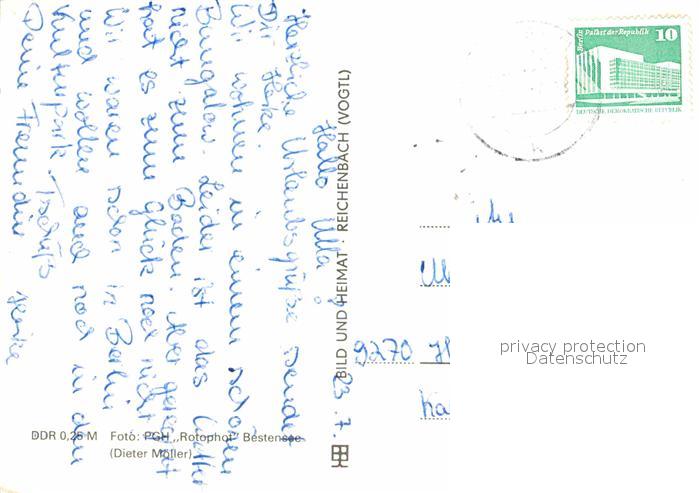 Hallo Ulla!
23.7.
Herzliche Urlaubsgrüße sendet
Dir Heike.
Wir wohnen in einem schönen
Bungalow. Leider ist das Wetter
nicht zum Baden. Aber geregnet
hat es zum Glück noch nicht.
Wir waren schon in Berlin
und wollen auch noch in den
Kulturpark. Tschüß
Deine Freundin Heike
DDR 0,25 M Foto: PGH „Rotophot" Bestensee
(Dieter Möller)
BILD UND HEIMAT · REICHENBACH (VOGTL)
Berlin Palast der Republik
10
DEUTSCHE DEMOKRATISCHE REPUBLIK
9270
privacy protection
Datenschutz